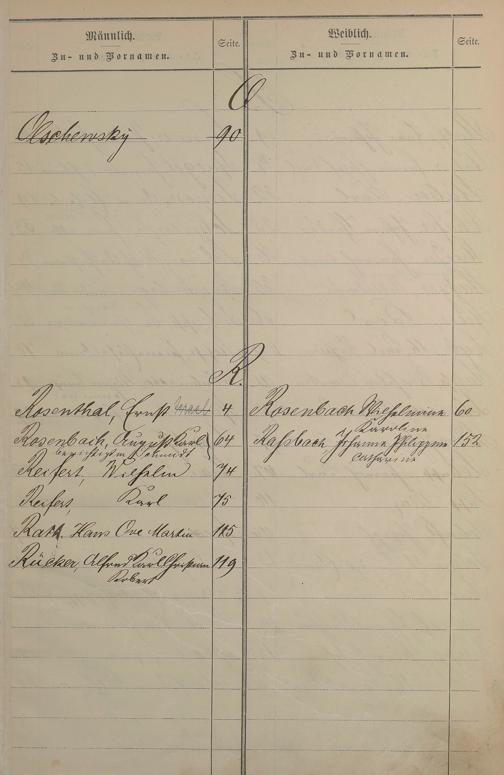 Männlich.
Zu- und Vornamen.
Seite.
Weiblich.
Zu- und Vornamen.
Seite.
O
Olschewsky 90
R.
Rosenthal, Ernst Israel 4
Rosenbach, August Karl 64
Schmidt
Reifert, Wilhelm 74
Reifert, Karl 75
Rath, Hans Ove Martin 115
Rücker, Alfred Karl Christian 119
Robert
Rosenbach Wilhelmine 60
Karoline
Raßbach, Johanne Philippine 152
Catharine